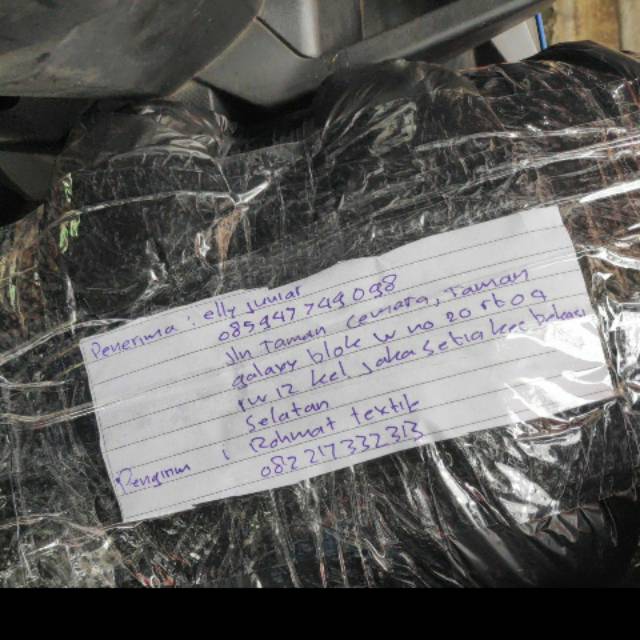 Penerima : elly juniar
085947749098
Jln taman cemara, taman
galaxy blok W no 20 rt 09
rw 12 kel jaka setia kec bekasi
Selatan
Pengirim : Rohmat textile
082217332313